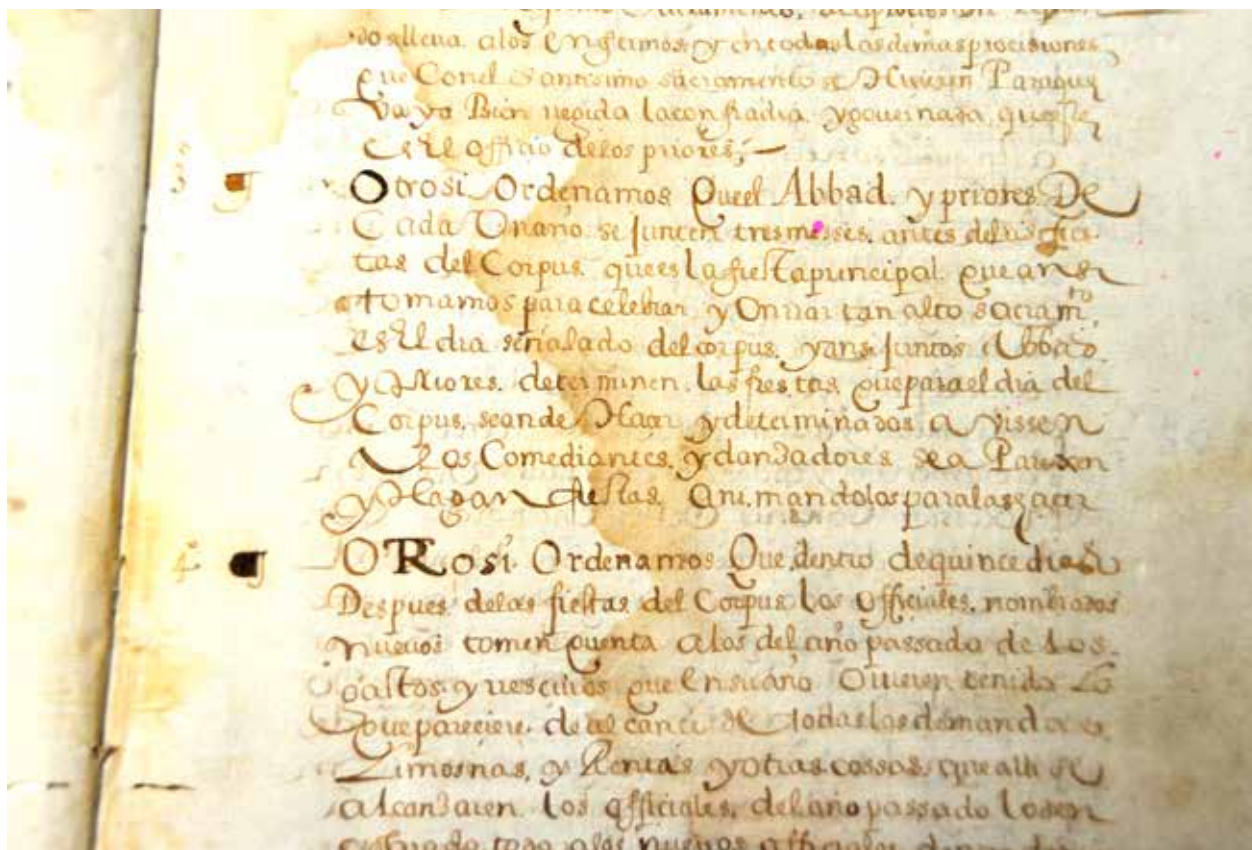 do alleva. alos Enfermos y en todas las demas procisiones
que Conel Santissimo sacramento se Hicieren Paraque
Vaya Bien regida la confradia. y governada, que este
es El officio delos priores,—
3 Otrosi Ordenamos Queel Abbad. y priores De
Cada Un año. se juncen tres messes. antes delas fies
tas del Corpus. que es la fiesta principal que ansi
tomamos para celebrar y Onrrar tan alto sacramto
es El dia señalado del corpus. y ansi juntos Abbad
y Priores. determinen. las fiestas, que para el dia del
Corpus, se an de Hacer y determinados avissen
a Los Comediantes. y danzadores se a Parejen
y Hagan fiestas, animandolos para las hacer
4 OTRosi Ordenamos Que dentro de quince dias
Despues delas fiestas del Corpus Los officiales. nombrados
nuevos tomen quenta alos del año passado de Los
gastos y rescivos que En su año Ovieren tenido Lo
que pareciere. de alcance de todas las demandas
Limosnas, y Rentas y otras cossas, que alli se
alcanzaren. los officiales, del año passado lo den
todo a los nuevos officiales